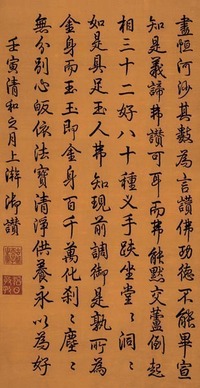 盡恒河沙其數為言讚佛功德不能畢宣
知是義諦弗讚可耳而弗能默交蘆倒起
相三十二好八十種叉手趺坐堂〻洞〻
如是具足玉人弗知現前調御是孰所為
金身而玉玉即金身百千萬化刹〻塵〻
無分別心皈依法寶清淨供養永以為好
壬寅清和之月上澣御讚